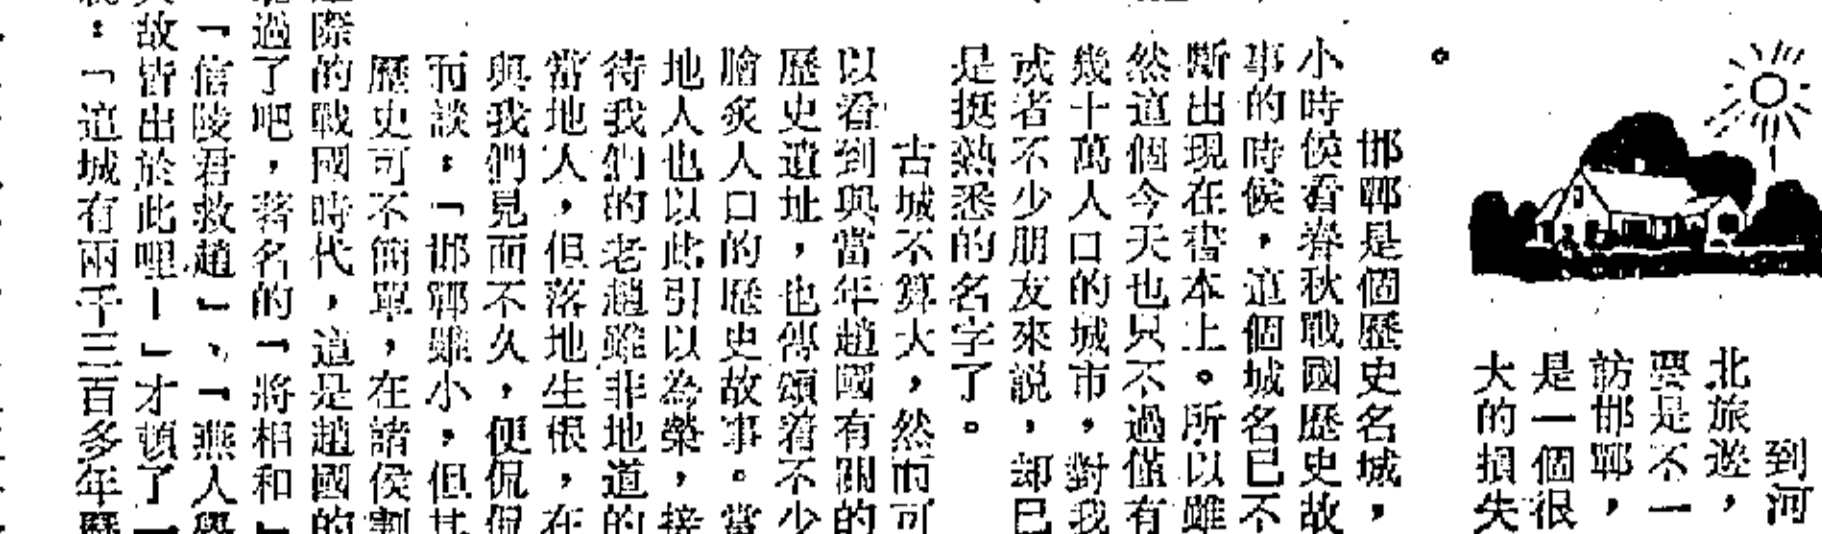 到河
北旅遊，
要是不一
訪邯鄲，
是一個很
大的損失
。
邯鄲是個歷史名城，
小時候看春秋戰國歷史故
事的時候，這個城名已不
斷出現在書本上。所以雖
然這個今天也只不過僅有
幾十萬人口的城市，對我
或者不少朋友來説，却已
是挺熱悉的名字了。
古城不算大，然而可
以看到與當年趙國有關的
歷史遺址，也傳頌着不少
膾炙人口的歷史故事。當
地人也以此引以為榮，接
待我們的老趙雖非地道的
當地人，但落地生根，在
與我們見面不久，便侃侃
而談：「邯鄲雖小，但其
歷史可不簡單，在諸侯割
際的戰國時代，這是趙國的
過了吧，著名的「將相和」
「信陵君救趙」、「燕人學
故皆出於此哩—」才頓了一
：「這城有兩千三百多年歷